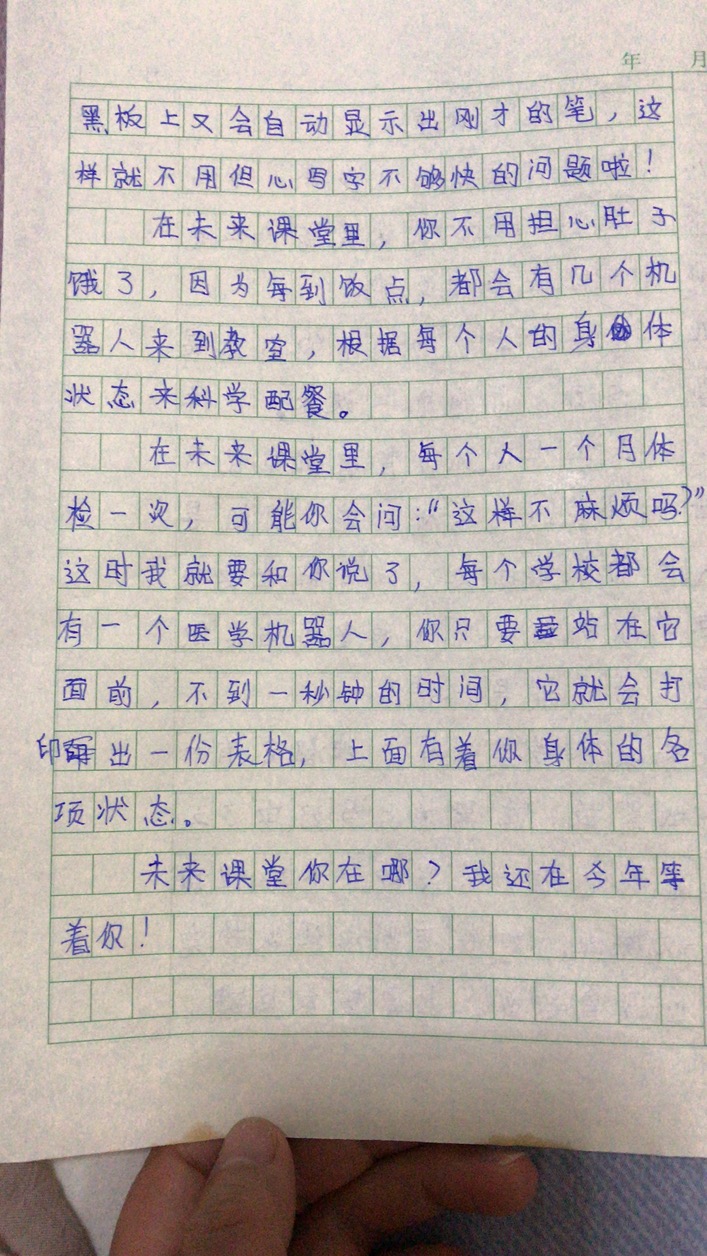 年 月
黑板上又会自动显示出刚才的笔，这
样就不用但心写字不够快的问题啦！
在未来课堂里，你不用担心肚子
饿了，因为每到饭点，都会有几个机
器人来到教室，根据每个人的身体
状态来科学配餐。
在未来课堂里，每个人一个月体
检一次，可能你会问：“这样不麻烦吗？”
这时我就要和你说了，每个学校都会
有一个医学机器人，你只要站在它
面前，不到一秒钟的时间，它就会打
印出一份表格，上面有着你身体的各
项状态。
未来课堂你在哪？我还在今年等
着你！